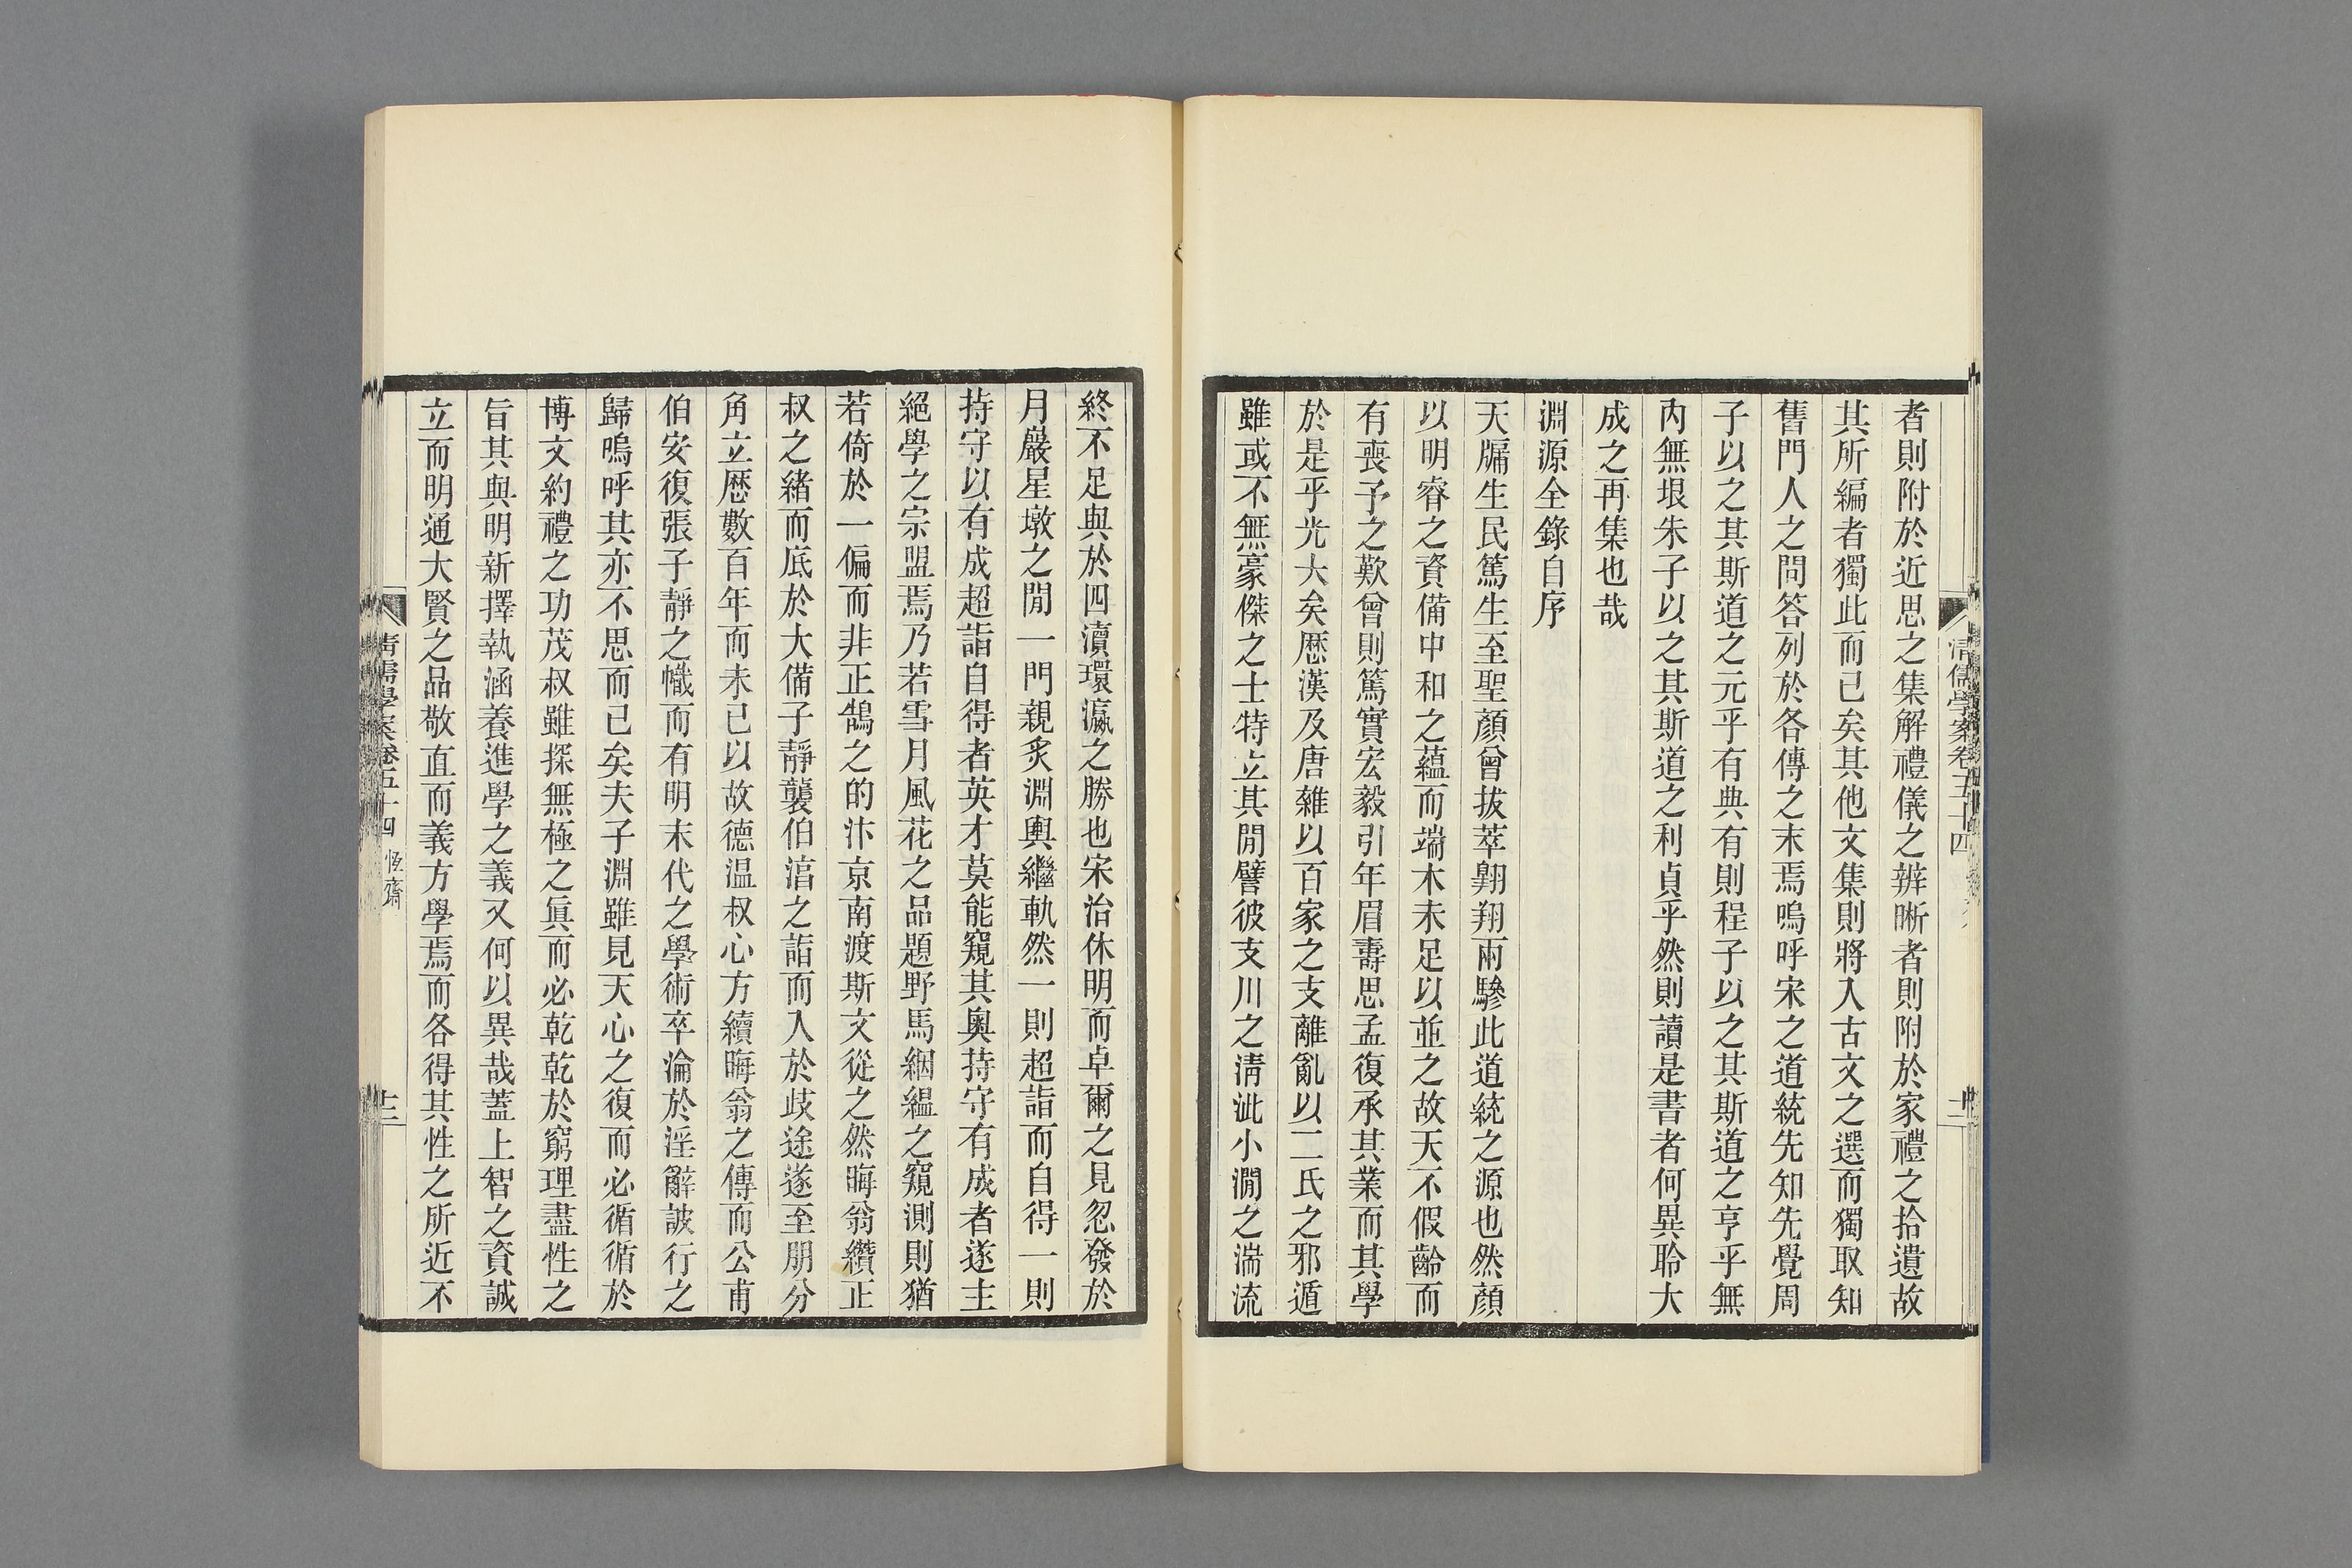 清儒學案卷五十四
者則附於近思之集解禮儀之辨晰者則附於家禮之拾遺故
其所編者獨此而已矣其他文集則將入古文之選而獨取知
舊門人之問答列於各傳之末焉嗚呼宋之道統先知先覺周
子以之其斯道之元乎有典有則程子以之其斯道之亨乎無
內無垠朱子以之其斯道之利貞乎然則讀是書者何異聆大
成之再集也哉
淵源全錄自序
天牖生民篤生至聖顏曾拔萃翺翔兩驂此道統之源也然顏
以明睿之資備中和之蘊而端木未足以並之故天不假齡而
有喪予之歎曾則篤實宏毅引年眉壽思孟復承其業而其學
於是乎光大矣厯漢及唐雜以百家之支離亂以二氏之邪遁
雖或不無豪傑之士特立其閒譬彼支川之淸泚小澗之湍流
終不足與於四瀆環瀛之勝也宋治休明而卓爾之見忽發於
月巖星墩之閒一門親炙淵輿繼軌然一則超詣而自得一則
持守以有成超詣自得者英才莫能窺其奧持守有成者遂主
絕學之宗盟焉乃若雪月風花之品題野馬絪縕之窺測則猶
若倚於一偏而非正鵠之的汴京南渡斯文從之然晦翁纘正
叔之緒而底於大備子靜襲伯淳之詣而入於歧途遂至朋分
角立厯數百年而未已以故德温叔心方續晦翁之傳而公甫
伯安復張子靜之幟而有明末代之學術卒淪於淫辭詖行之
歸嗚呼其亦不思而已矣夫子淵雖見天心之復而必循循於
博文約禮之功茂叔雖探無極之眞而必乾乾於窮理盡性之
旨其與明新擇執涵養進學之義又何以異哉蓋上智之資誠
立而明通大賢之品敬直而義方學焉而各得其性之所近不
清儒學案卷五十四 恆齋 十二